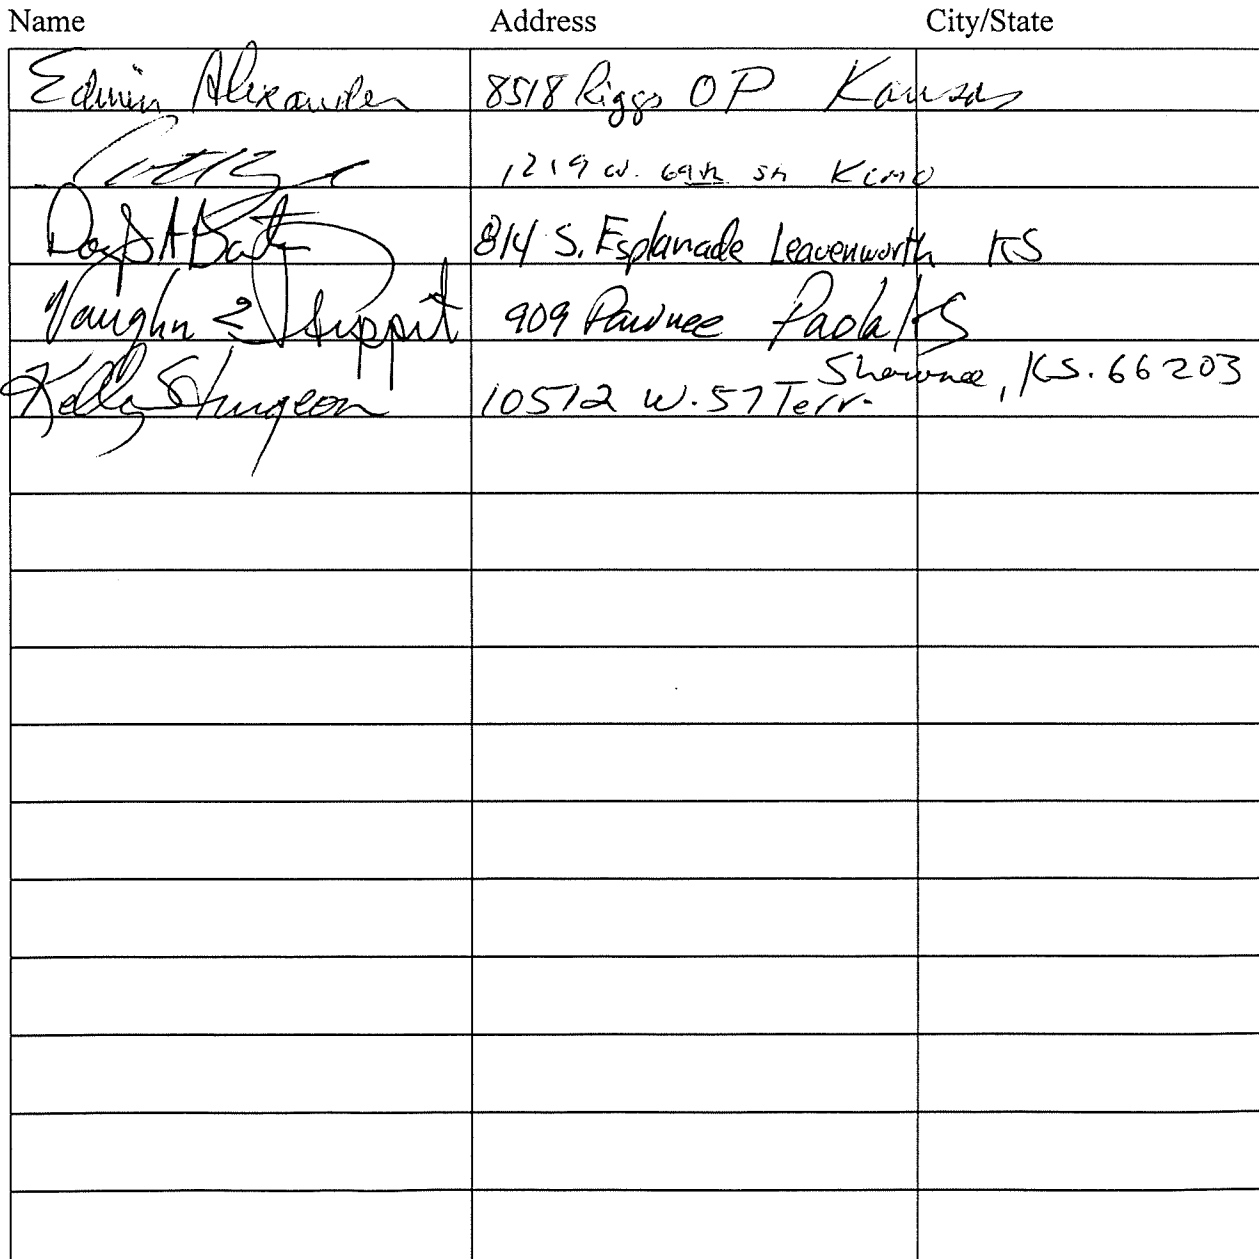 Name Address City/State
Edwin Alexander 8518 Riggs OP Kansas
1219 W. 69th KCMO
814 S. Esplanade Leavenworth KS
Vaughn 909 Pawnee Paola KS
Kelly Sturgeon 10512 W. 57 Terr. Shawnee, KS. 66203